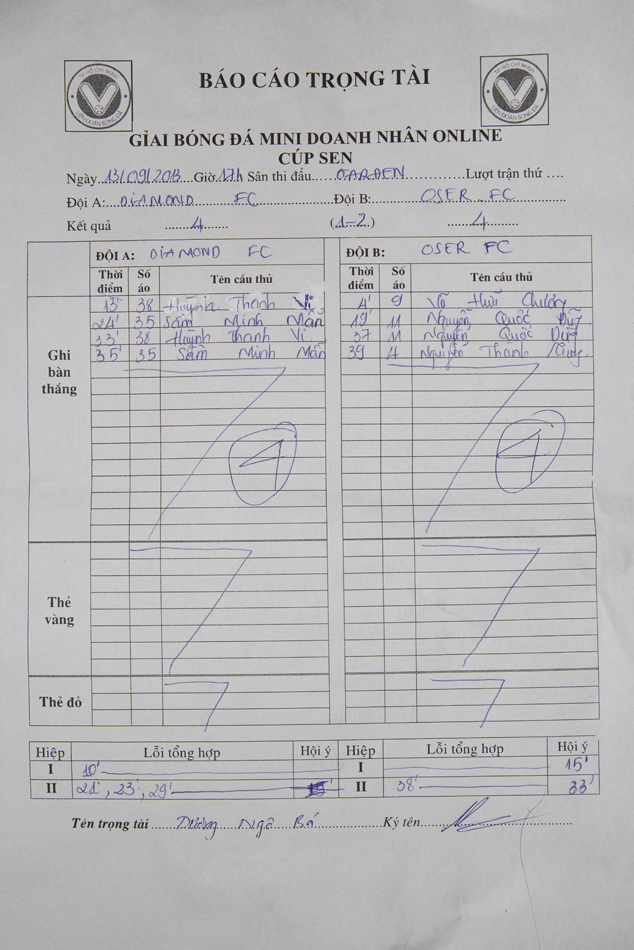 TP HỒ CHÍ MINH
LIÊN ĐOÀN BÓNG ĐÁ
BÁO CÁO TRỌNG TÀI
TP HỒ CHÍ MINH
LIÊN ĐOÀN BÓNG ĐÁ
GIẢI BÓNG ĐÁ MINI DOANH NHÂN ONLINE
CÚP SEN
Ngày 13/09/2013 Giờ 17h Sân thi đấu GARDEN Lượt trận thứ ....
Đội A: DIAMOND FC Đội B: OSER FC
Kết quả 4 (1-2) 4
ĐỘI A: DIAMOND FC ĐỘI B: OSER FC
Thời điểm Số áo Tên cầu thủ Thời điểm Số áo Tên cầu thủ
Ghi bàn thắng
13' 38 Huỳnh Thanh Vi 4' 9 Võ Hữu Chương
24' 35 Sầm Minh Mẫn 19' 11 Nguyễn Quốc Dũng
33' 38 Huỳnh Thanh Vi 37 11 Nguyễn Quốc Dũng
35' 35 Sầm Minh Mẫn 39 4 Nguyễn Thanh
4 4
Thẻ vàng
Thẻ đỏ
Hiệp Lỗi tổng hợp Hội ý Hiệp Lỗi tổng hợp Hội ý
I 10' I 15'
II 21', 23', 29' II 38' 33'
Tên trọng tài Dương Ngô Bá Ký tên